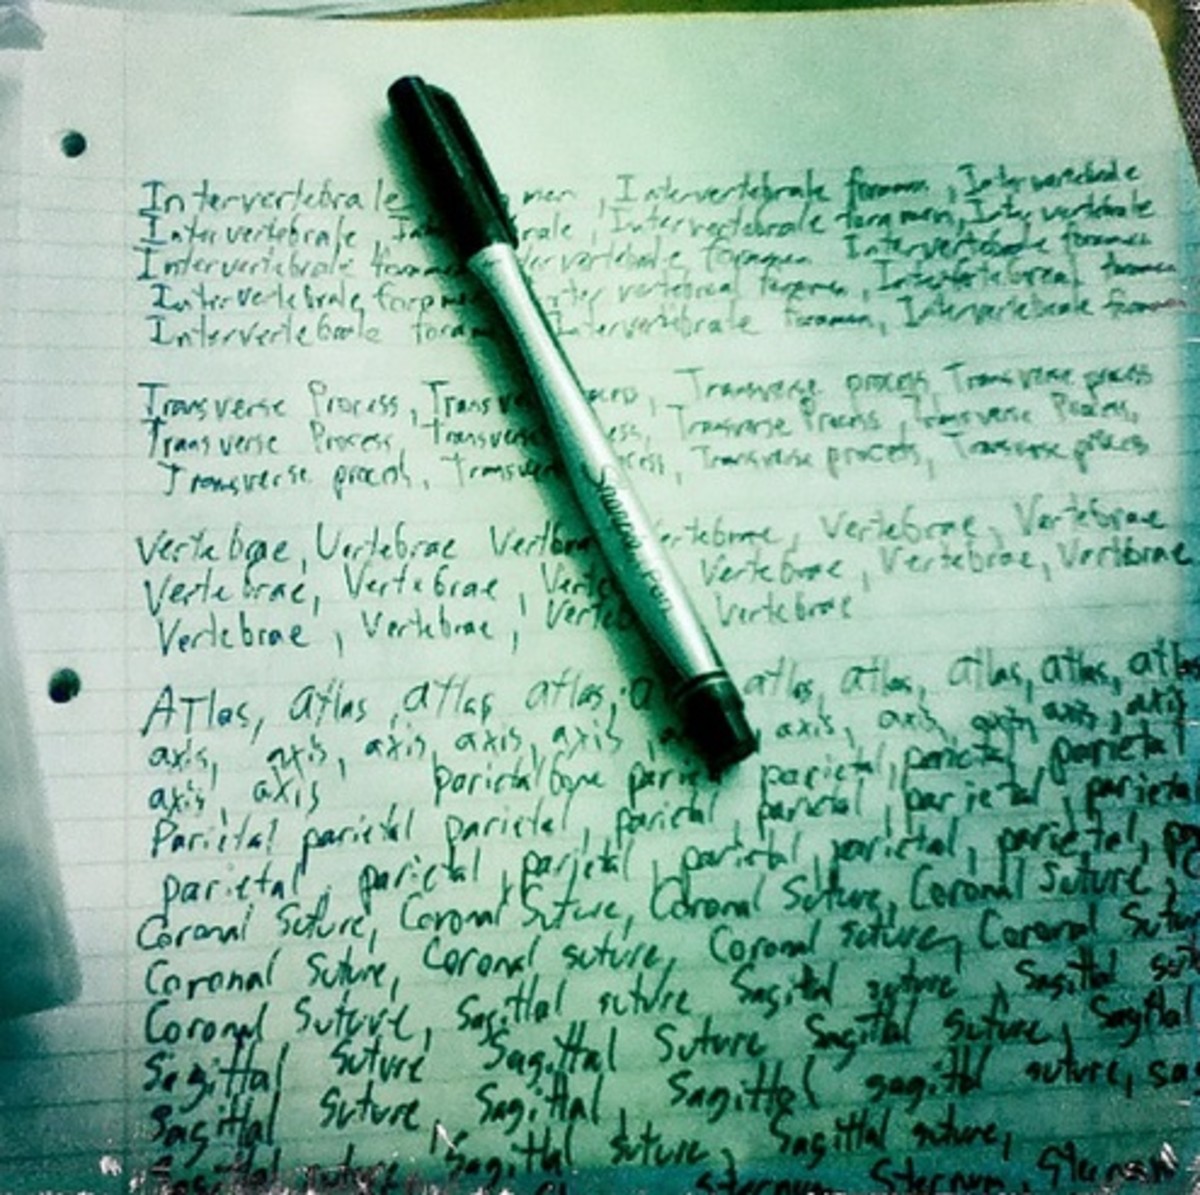 Intervertebrale men, Intervertebrale foramen, Intervertebrale
Intervertebrale, rale, Intervertebrale foramen, Intervertebrale
Intervertebrale foramen vertebrale foramen Intervertebrale foramen
Intervertebrale, foramen vertebreal foramen, Intervertebreal foramen
Intervertebrale foram Intervertebrale foramen, Intervertebrale foramen
Transverse Process, Transve Transverse process, Transverse process
Transverse Process, Transverse ess, Transverse Process, Transverse Process,
Transverse process, Transver cess, Transverse process, Transverse process
Vertebrae, Vertebrae Vertbra ertebrae, Vertebrae, Vertebrae
Vertebrae, Vertebrae, Verte Vertebrae, Vertebrae, Vertbrae
Vertebrae, Vertebrae, Verteb Vertebrae
Atlas, atlas, atlas atlas, a atlas, atlas, atlas, atlas, atlas
axis, axis, axis, axis, axis, axis, axis, axis, axis, axis
axis, axis parietal bone pariet parietal, parietal parietal
Parietal parietal parietal, parietal, parietal, parietal, parietal
parietal, parietal, parietal, parietal, parietal, parietal, p
Coronal Suture, Coronal Suture, Coronal Suture, Coronal Suture, C
Coronal Suture, Coronal suture, Coronal suture, Coronal Sutu
Coronal Suture, Sagittal suture Sagittal suture, Sagittal sut
Sagittal Suture Sagittal Suture Sagittal suture, Sagittal
Sagittal Suture, Sagittal, Sagittal sagittal suture, sa
suture, Sagittal suture, Sagittal suture,
sternum, Sternum, Sternum
Sharpie Pen